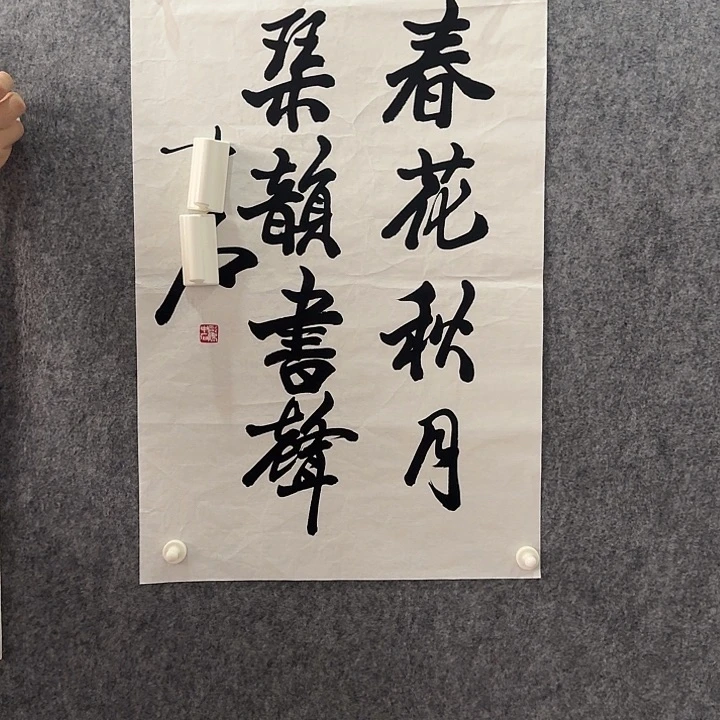 春花秋月
琹韻書聲